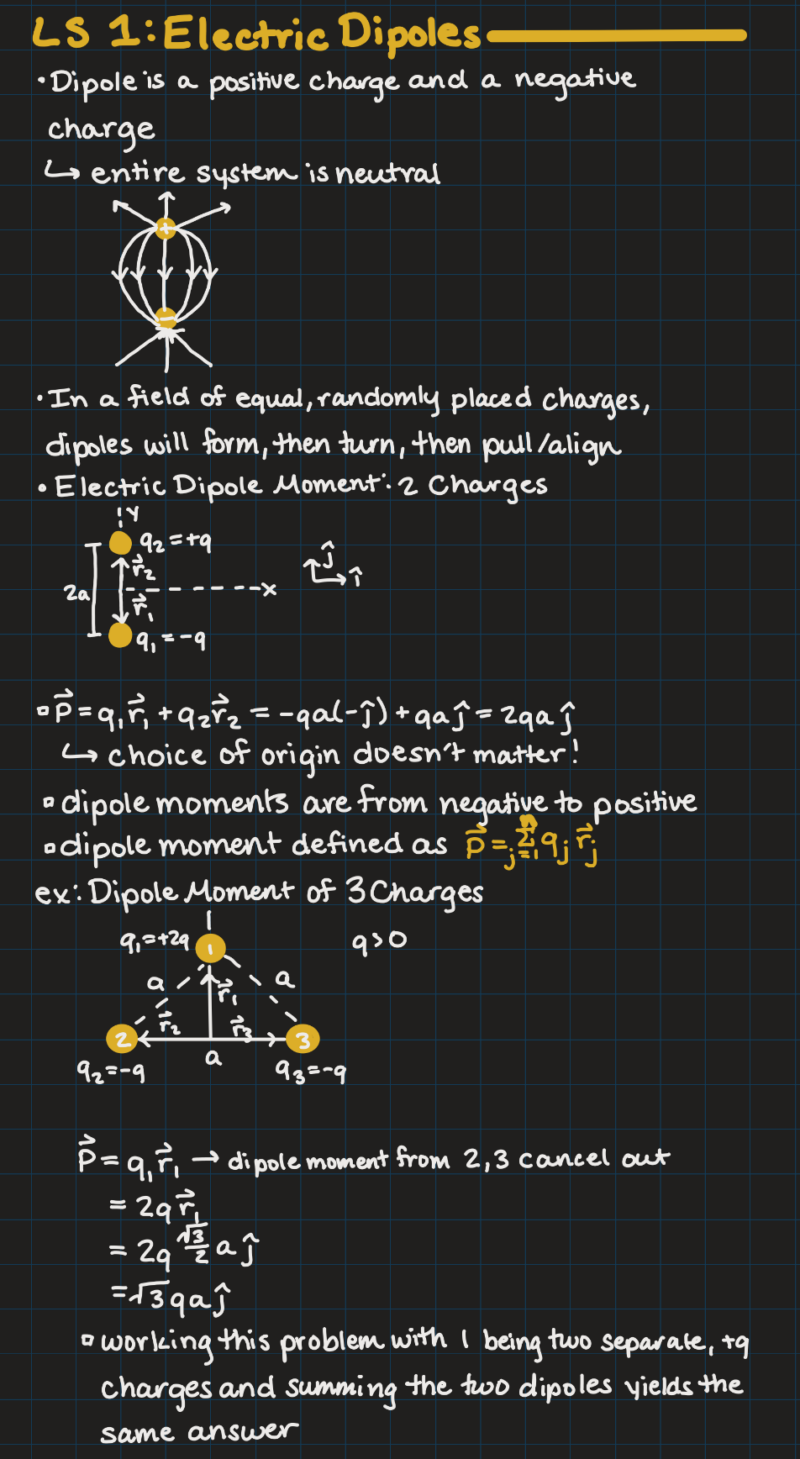 LS 1: Electric Dipoles
• Dipole is a positive charge and a negative
charge
↳ entire system is neutral
+
−
• In a field of equal, randomly placed charges,
dipoles will form, then turn, then pull/align
• Electric Dipole Moment: 2 Charges
y
q₂ = +q
ĵ
r⃗₂
2a
x
î
r⃗₁
q₁ = -q
▫ p⃗ = q₁r⃗₁ + q₂r⃗₂ = -qa(-ĵ) + qaĵ = 2qa ĵ
↳ choice of origin doesn't matter!
▫ dipole moments are from negative to positive
▫ dipole moment defined as p⃗ = ⁿΣⱼ₌₁ qⱼ r⃗ⱼ
ex: Dipole Moment of 3 Charges
q₁ = +2q
1
q > 0
a
a
r⃗₁
r⃗₂
r⃗₃
2
3
a
q₂ = -q
q₃ = -q
p⃗ = q₁r⃗₁ → dipole moment from 2,3 cancel out
= 2q r⃗₁
= 2q √3/2 a ĵ
= √3 qa ĵ
▫ working this problem with 1 being two separate, +q
charges and summing the two dipoles yields the
same answer